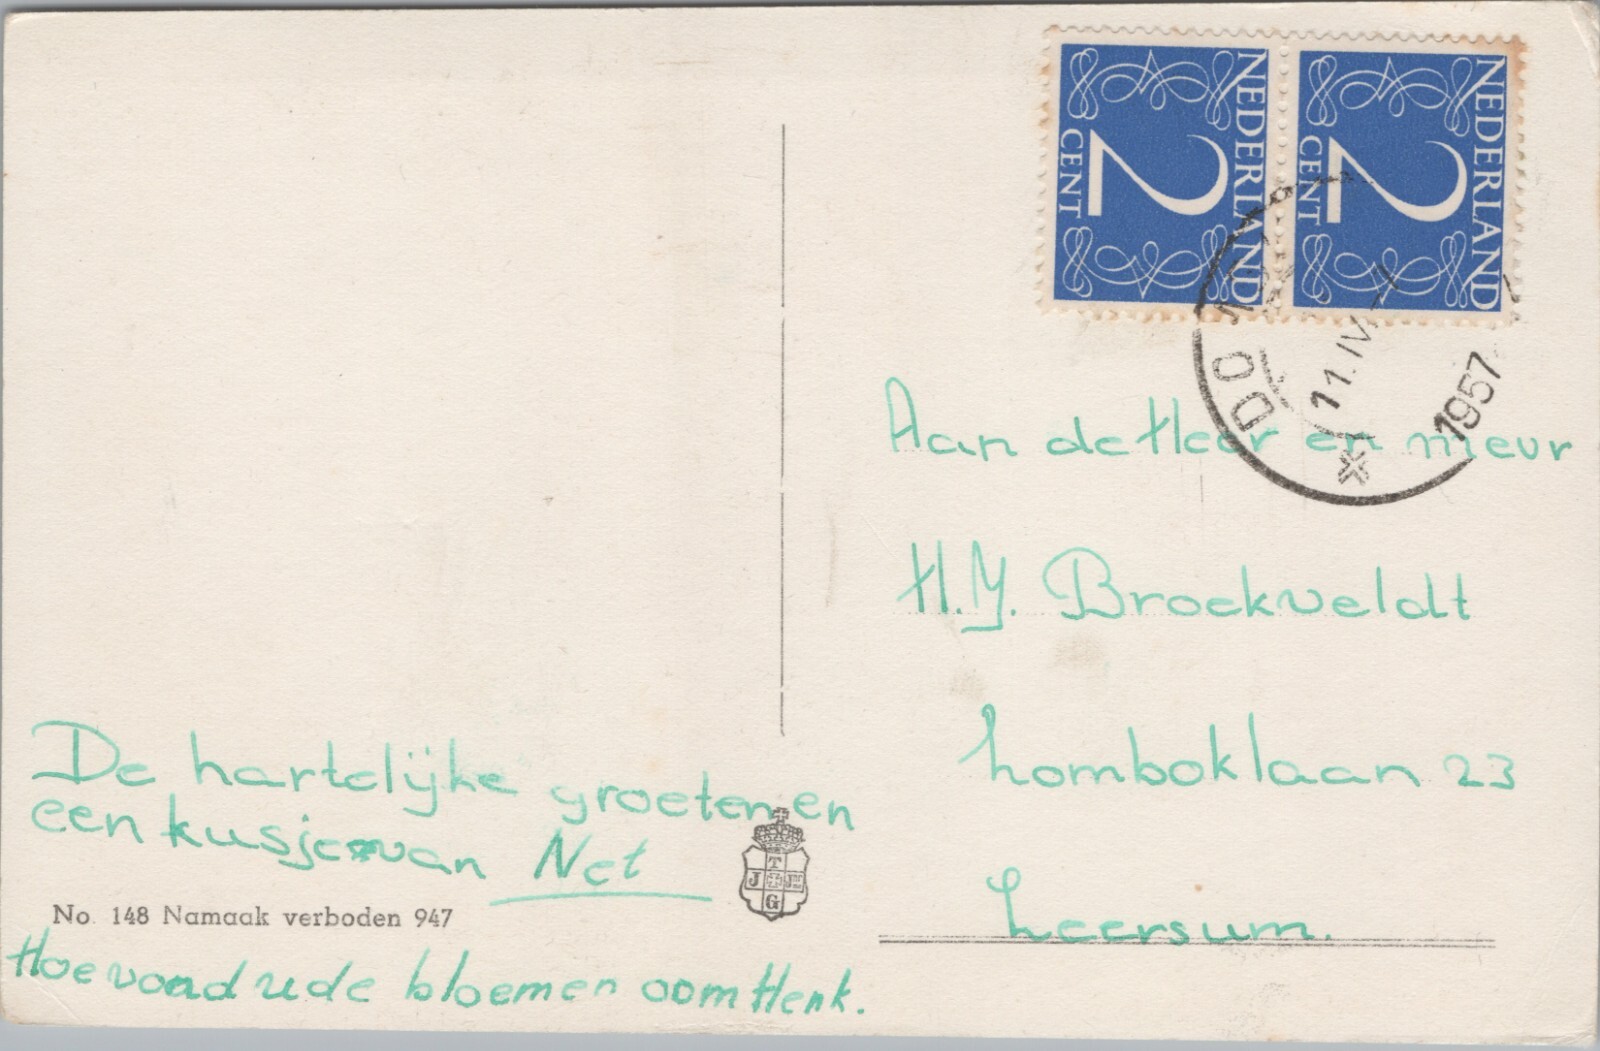 NEDERLAND
2
CENT
NEDERLAND
2
CENT
11.IV
1957
Aan de Heer en mevr
H.J. Broekveldt
Lomboklaan 23
Leersum.
De hartelijke groeten en
een kusje van Net
T
J Jzn
G
No. 148 Namaak verboden 947
Hoe vond u de bloemen oom Henk.